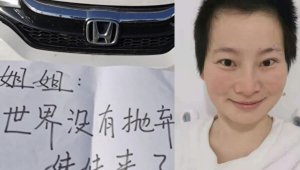 姐姐：
世界没有抛弃